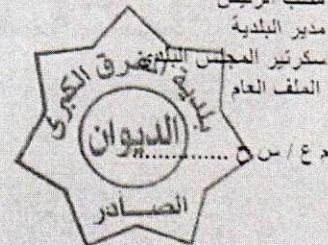 مكتب الرئيس
مدير البلدية
سكرتير المجلس البلدي
الملف العام
م ع / س ح ..............
بلدية المفرق الكبرى
الديوان
الصادر